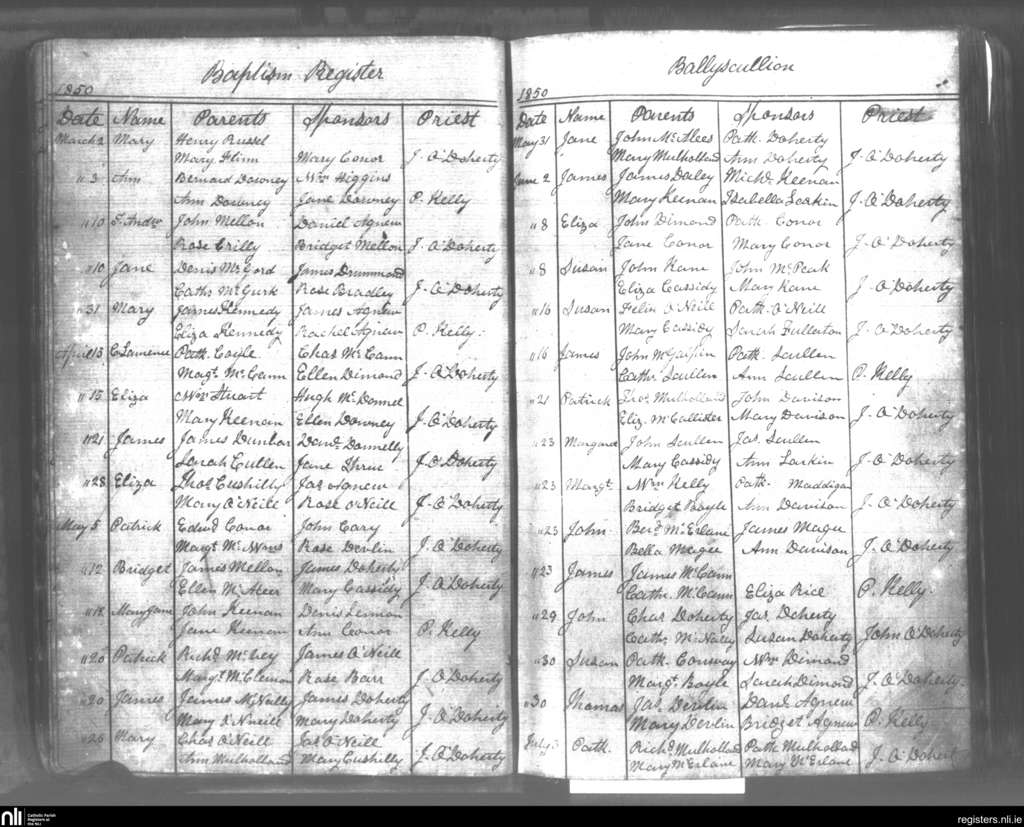 Baptism Register
1850
Date Name Parents Sponsors Priest
March 2 Mary Henry Russel
Mary Flinn Mary Conor J. O'Doherty
" 3 Ann Bernard Downey Wm Higgins
Ann Downey Jane Downey P. Kelly
" 10 John Mellon Daniel Agnew
Rose Crilly Bridget Mellon J. O'Doherty
" 10 Jane Denis McGord James Drummond
Cathr McGurk Rose Bradley J. O'Doherty
" 31 Mary James Kennedy James Agnew
Eliza Kennedy Rachel Agnew P. Kelly.
April 13 C. Lawrence Patk. Coyle Chas McCann
Magt. McCann Ellen Dimond J. O'Doherty
" 15 Eliza Wm Stuart Hugh McDonnel
Mary Keenan Ellen Downey J. O'Doherty
" 21 James James Dunbar Danl. Donnelly
Sarah Cullen Jane J. O'Doherty
" 28 Eliza Thos Cushilly Jas Agnew
Mary O'Neill Rose O'Neill J. O'Doherty
May 5 Patrick Edwd Conor John Cary
Margt Rose Devlin J. O'Doherty
" 12 Bridget James Mellon James Doherty
Ellen McAleer Mary Cassidy J. O'Doherty
Mary Jane John Keenan Denis Lennon
Jane Keenan Ann Conor P. Kelly
" 20 Patrick Richd James O'Neill
Margt. Rose Barr J. O'Doherty
" 20 James James McNally James Doherty
Mary O'Neill Mary Doherty J. O'Doherty
" 26 Mary Chas O'Neill Jas O'Neill
Ann Mulholland Mary Cushilly J. O'Doherty
Ballyscullion
1850
Date Name Parents Sponsors Priest
May 31 Jane John McAlees Patk. Doherty
Mary Mulholland Ann Doherty J. O'Doherty
June 2 James James Daley Michd. Keenan
Mary Keenan Isabella Larkin J. O'Doherty
" 8 Eliza John Dimond Patk Conor
Jane Conor Mary Conor J. O'Doherty
" 8 Susan John Kane John McPeak
Eliza Cassidy Mary Kane J. O'Doherty
" 16 Susan Felix O'Neill Patk. O'Neill
Mary Cassidy Sarah Fullerton J. O'Doherty
" 16 James John Patk. Scullen
Cathr. Scullen Ann Scullen P. Kelly
" 21 Patrick Thos Mulholland John Davison
Eliz. McCallister Mary Davison J. O'Doherty
" 23 Margaret John Scullen Jas. Scullen
Mary Cassidy Ann Larkin J. O'Doherty
" 23 Margt. Wm Kelly Patk. Maddigan
Bridget Boyle Ann Davison J. O'Doherty
" 23 John Berd McErlane James Magee
Bella Magee Ann Davison J. O'Doherty
" 23 James James McCann
Cathr. McCann Eliza Rice P. Kelly.
" 29 John Chas Doherty Jas. Doherty
Cathr McNally Susan Doherty John O'Doherty
" 30 Susan Patk. Conway Wm Dimond
Margt. Boyle Sarah Dimond J. O'Doherty
" 30 Thomas Jas. Devlin Danl. Agnew
Mary Devlin Bridget Agnew P. Kelly
July 3 Patk. Richd. Mulholland Patk Mulholland
Mary McErlane Mary McErlane J. O'Doherty
nli Catholic Parish Registers at the NLI registers.nli.ie